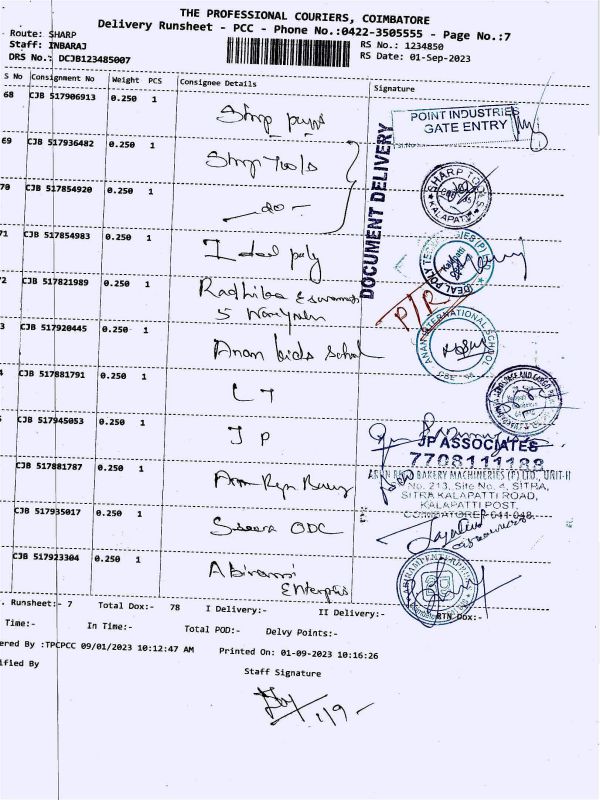 THE PROFESSIONAL COURIERS, COIMBATORE
Delivery Runsheet - PCC - Phone No.:0422-3505555 - Page No.:7
Route: SHARP
RS No.: 1234850
Staff: INBARAJ
RS Date: 01-Sep-2023
DRS No.: DCJB123485007
S No Consignment No Weight PCS Consignee Details Signature
68 CJB 517906913 0.250 1 Sharp
POINT INDUSTRIES
GATE ENTRY
69 CJB 517936482 0.250 1 Sharp Tools
SHARP TOOLS
KALAPATTI
70 CJB 517854920 0.250 1 -do-
DOCUMENT DELIVERY
71 CJB 517854983 0.250 1 Ideal poly
IDEAL POLY TECHNOLOGIES (P)
2 CJB 517821989 0.250 1 Radhika
P/R
3 CJB 517920445 0.250 1 Anan kids school
ANAN INTERNATIONAL SCHOOL
4 CJB 517881791 0.250 1 LT
5 CJB 517945053 1 JP
0.250
JP ASSOCIATES
7708111188
CJB 517881787 0.250 1
BAKERY MACHINERIES (P) LTD., UNIT-II
No. 213, Site No. 4, SITRA,
SITRA KALAPATTI ROAD,
KALAPATTI POST,
COIMBATORE - 641 048.
CJB 517935017 0.250 1 ODC
CJB 517923304 0.250 1 Abirami
Enterprises
. Runsheet:- 7 Total Dox:- 78 I Delivery:- II Delivery:- RTN Dox:-
Time:- In Time:- Total POD:- Delvy Points:-
ered By :TPCPCC 09/01/2023 10:12:47 AM Printed On: 01-09-2023 10:16:26
ified By
Staff Signature
1/9-